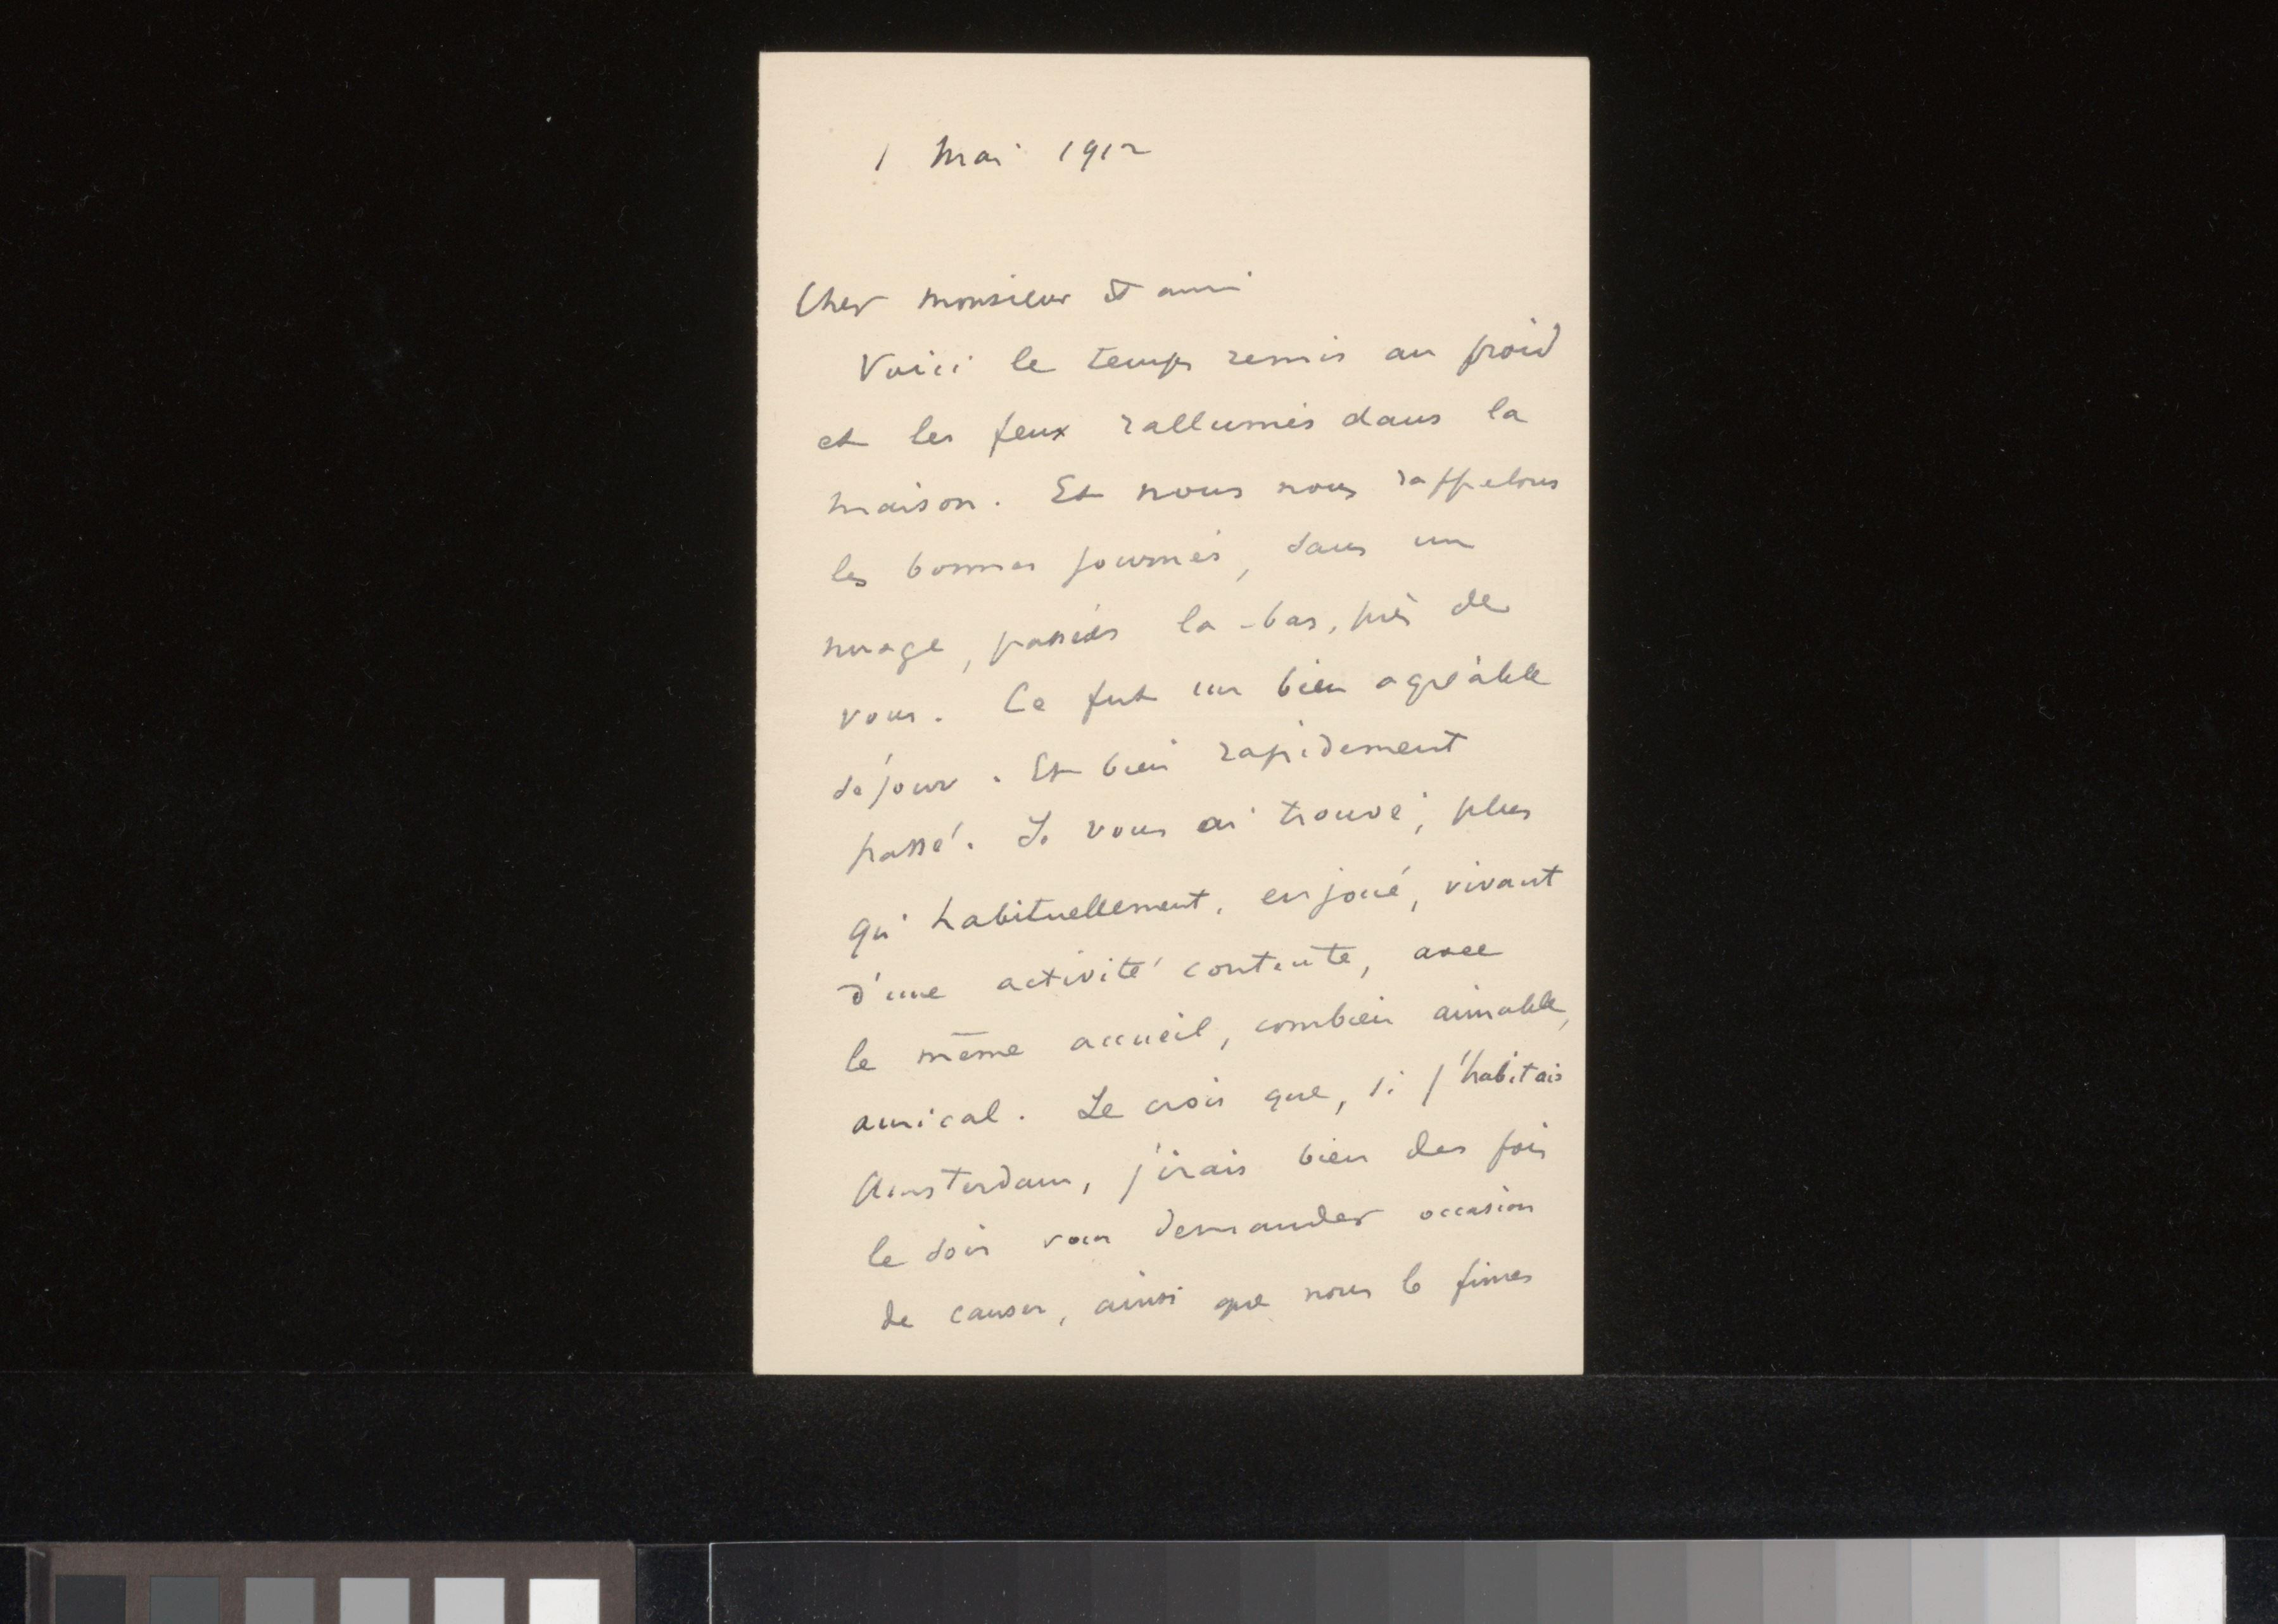 1 Mai 1912
Cher monsieur et ami
Voici le temps remis au froid
et les feux rallumés dans la
maison. Et nous nous rappelons
les bonnes journées, sans un
nuage, passées là-bas, près de
vous. Ce fut un bien agréable
séjour. Et bien rapidement
passé. Je vous ai trouvé, plus
qu'habituellement, enjoué, vivant
d'une activité contente, avec
le même accueil, combien aimable,
amical. Je crois que, si j'habitais
Amsterdam, j'irais bien des fois
le soir vous demander occasion
de causer, ainsi que nous le fimes